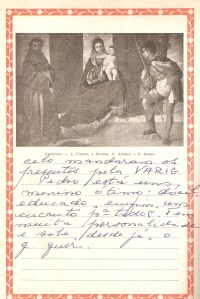 Giorgione - A Virgem, o Menino, S. Antônio e S. Roque
ceto mandaram os
presentes pela VARIG.
Pedro está um
menino ótimo: docil
educado, enfim, um
encanto pª todos. Tem
muita personalidade
e sabe, desde já, o
q. quer.